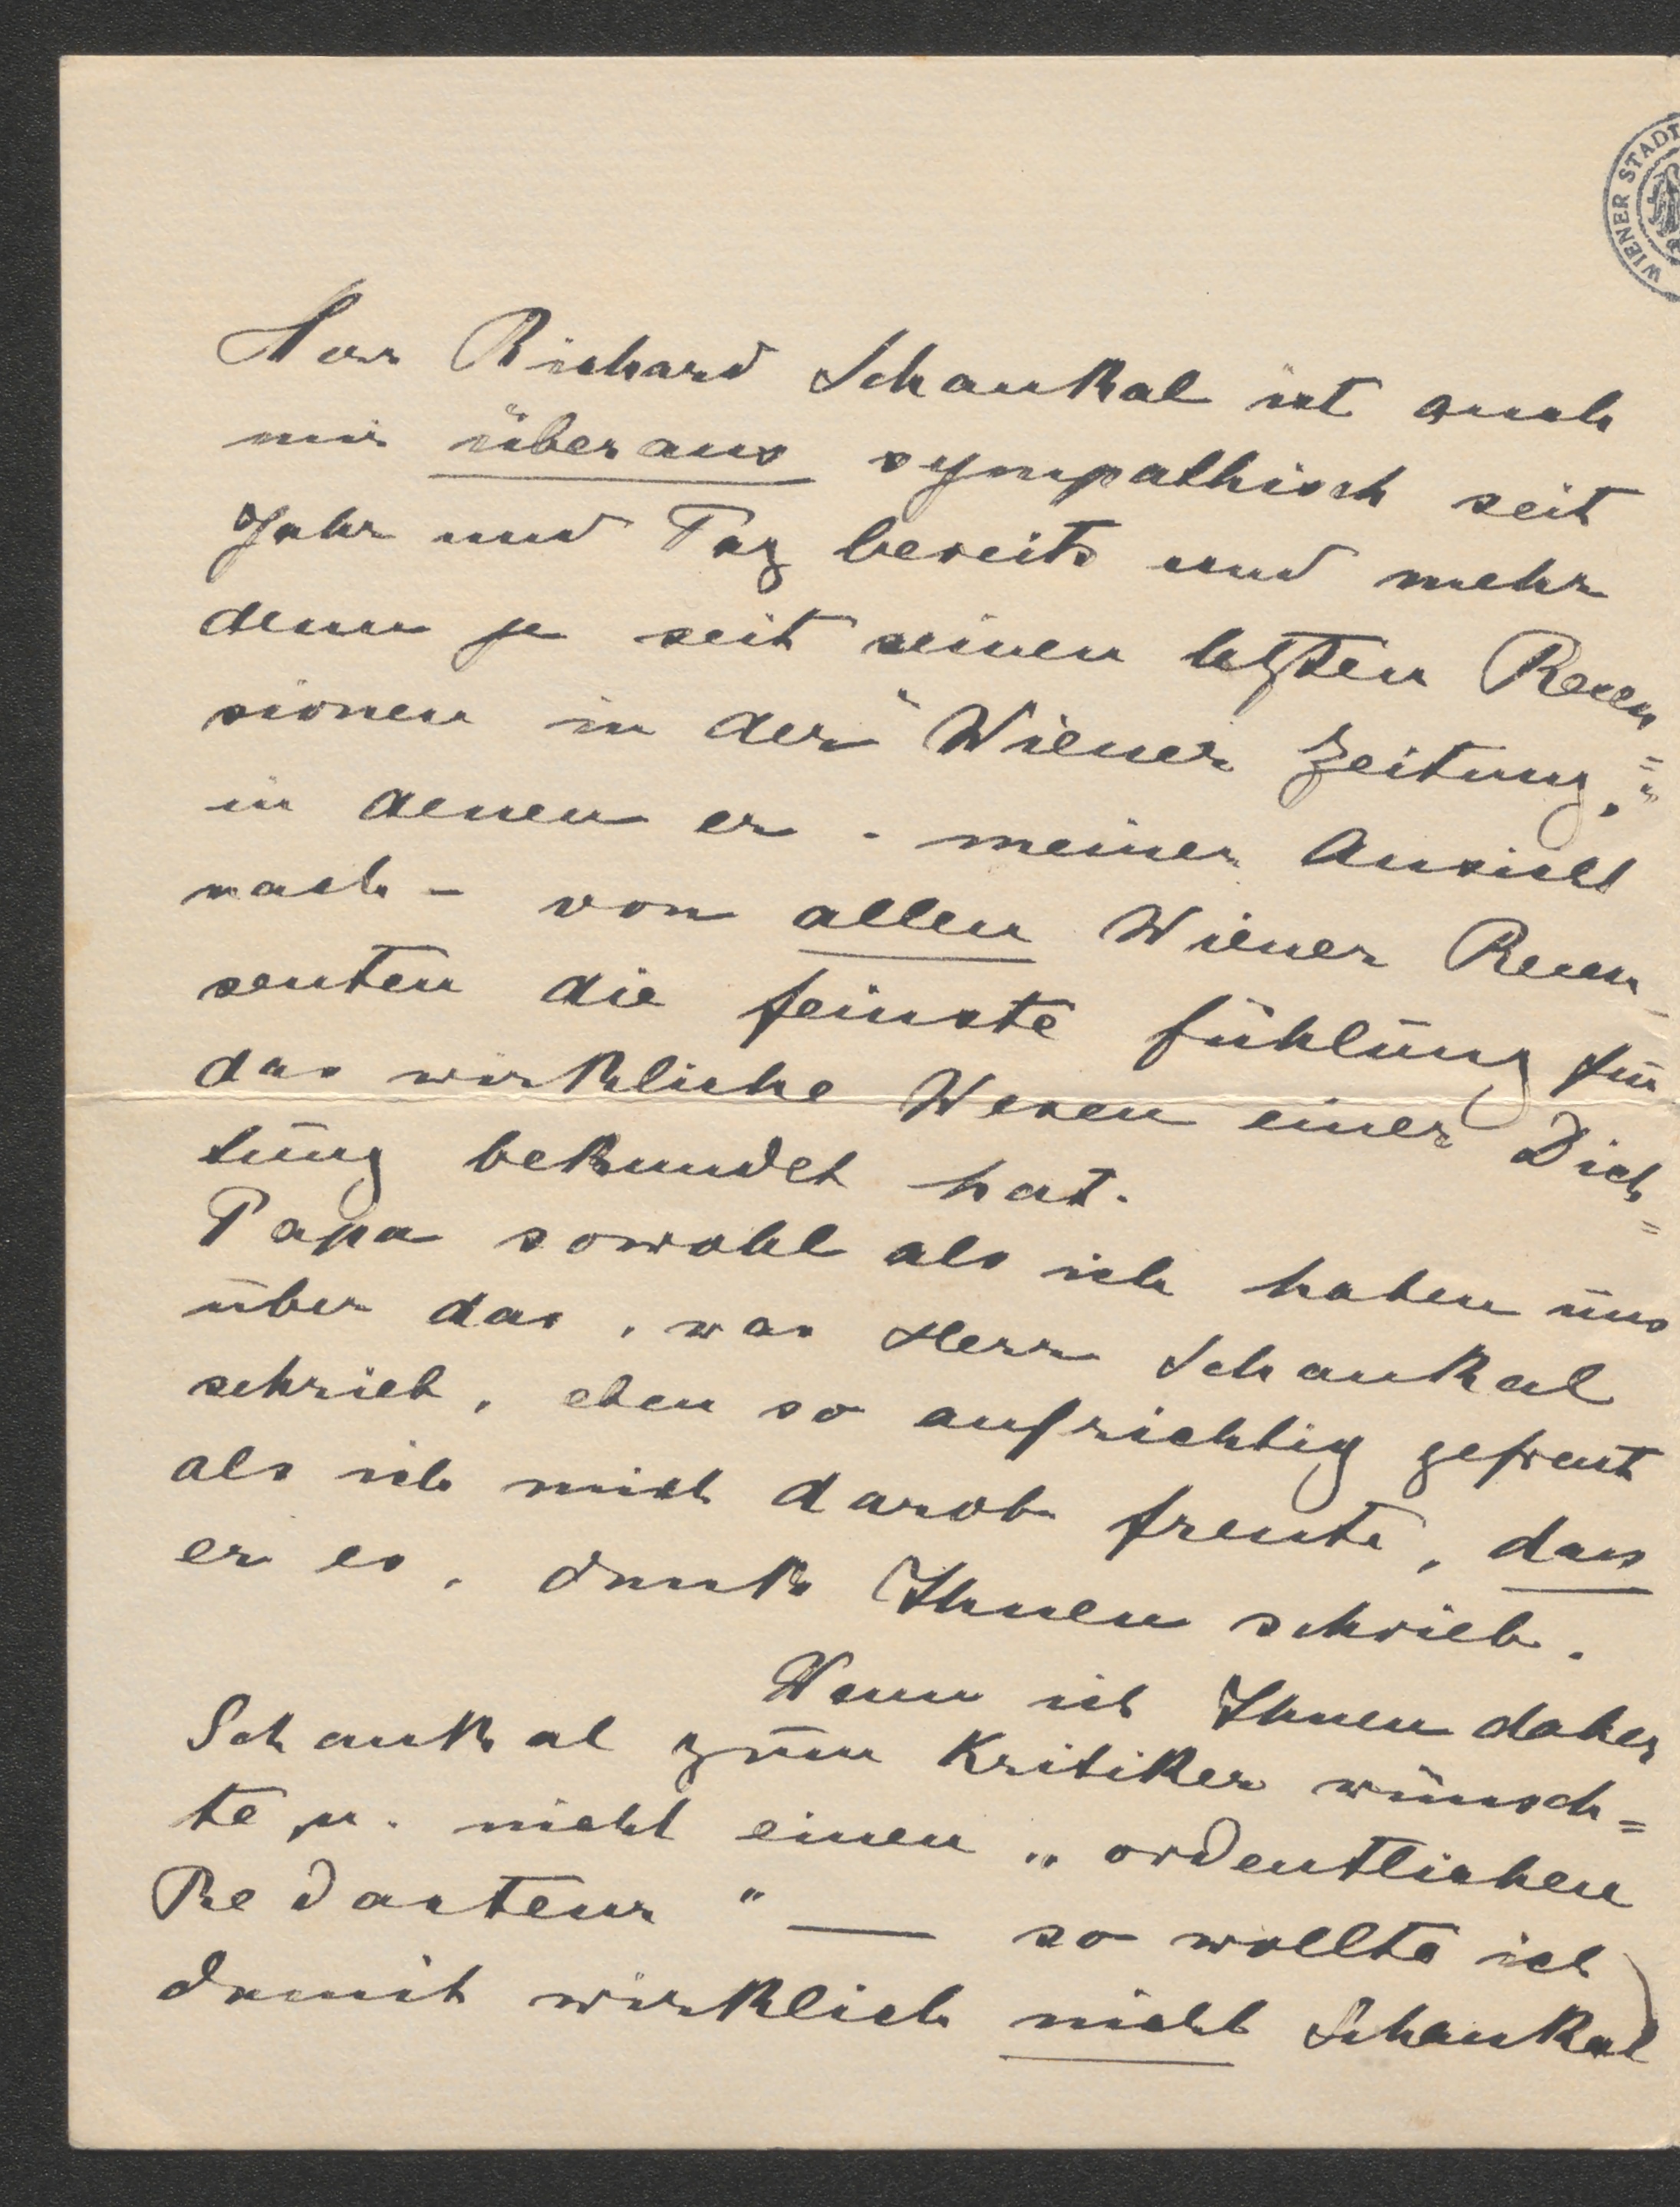 WIENER STADT
Herr Richard Schaukal ist auch
mir überaus sympathisch seit
Jahr und Tag bereits und mehr
denn je seit seinen letzten Recen=
sionen in der "Wiener Zeitung,"
in denen er - meiner Ansicht
nach - von allen Wiener Recen-
senten die feinste Fühlung für
das wirkliche Wesen einer Dich=
tung bekundet hat.
Papa sowohl als ich haben uns
über das, was Herr Schaukal
schrieb, eben so aufrichtig gefreut
als ich mich darob freute, dass
er es, dank Ihnen schrieb.
Wenn ich Ihnen daher
Schaukal zum Kritiker wünsch=
te u. nicht einen „ordentlichen
Redacteur" — so wollte ich
damit wirklich nicht Schaukal